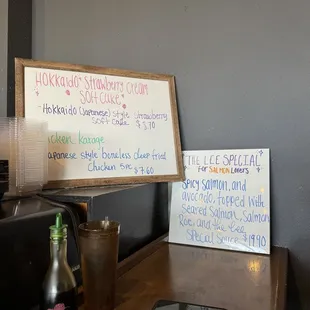 Hokkaido Strawberry Cream
Soft Cake
Hokkaido (Japanese) style strawberry
soft cake $3.70
Chicken Karage
Japanese style boneless deep fried
Chicken 5pc $7.60
The Lee Special
for Salmon Lovers
Spicy Salmon, and
avocado, topped with
Seared Salmon, Salmon
Roe, and the Lee
Special Sauce $19.40